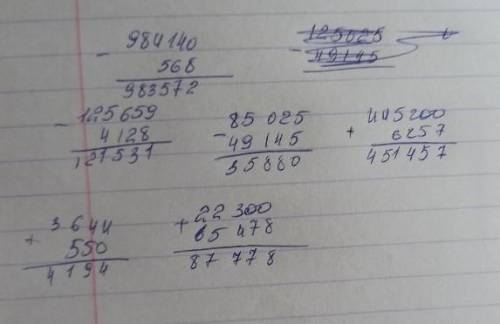 - 984140
568
983572
- 125659
4128
121531
- 85 025
49 145
35880
+ 445200
6257
451457
+ 3644
550
4194
+ 22 300
65 478
87 778